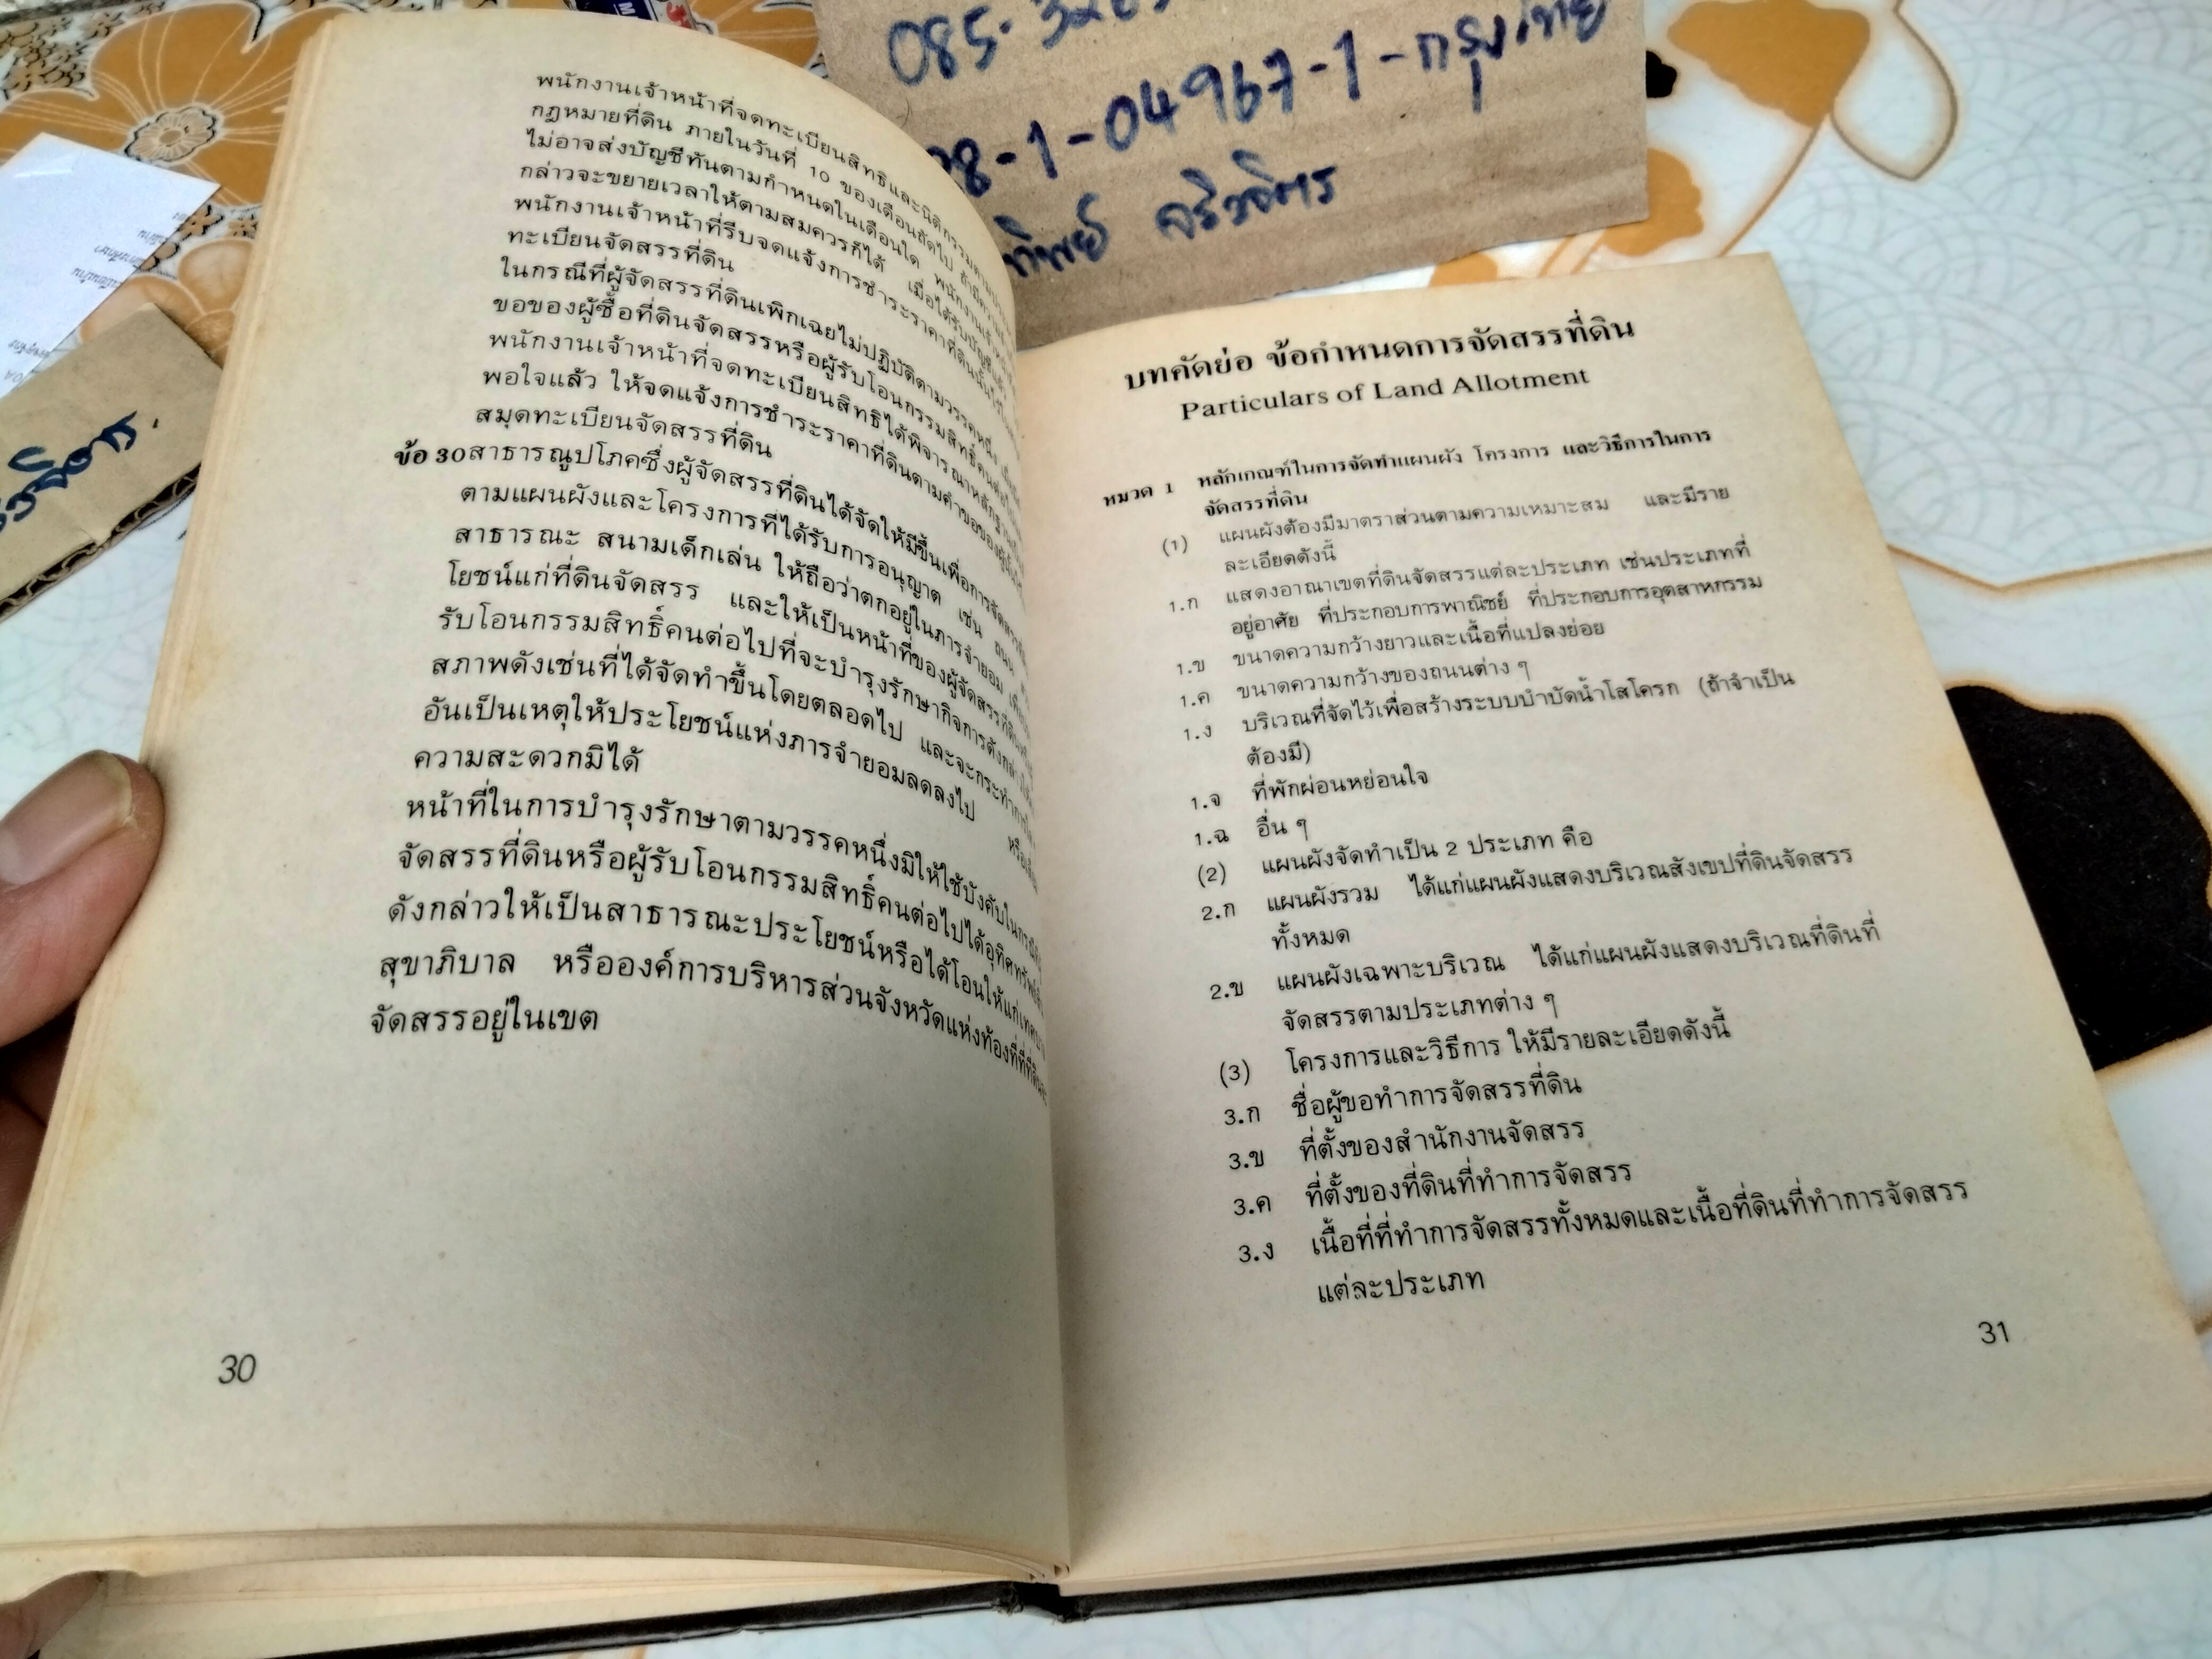 085-3
28-1-04967-1-กรุงไทย
ทิพย์
พนักงานเจ้าหน้าที่จดทะเบียนสิทธิและนิติกรรมตาม
กฎหมายที่ดิน ภายในวันที่ 10 ของเดือนถัดไป ถ้ามีความ
ไม่อาจส่งบัญชีทันตามกำหนดในเดือนใด พนักงานเจ้า
กล่าวจะขยายเวลาให้ตามสมควรก็ได้ เมื่อได้รับบัญชีแล้ว
พนักงานเจ้าหน้าที่รีบจดแจ้งการชำระราคาที่ดินนั้นไว้
ทะเบียนจัดสรรที่ดิน
ในกรณีที่ผู้จัดสรรที่ดินเพิกเฉยไม่ปฏิบัติตามวรรคหนึ่ง
ขอของผู้ซื้อที่ดินจัดสรรหรือผู้รับโอนกรรมสิทธิ์คนต่อไป
พนักงานเจ้าหน้าที่จดทะเบียนสิทธิได้พิจารณาหลักฐาน
พอใจแล้ว ให้จดแจ้งการชำระราคาที่ดินตามคำขอของผู้
สมุดทะเบียนจัดสรรที่ดิน
ข้อ 30 สาธารณูปโภคซึ่งผู้จัดสรรที่ดินได้จัดให้มีขึ้นเพื่อการจัดสรร
ตามแผนผังและโครงการที่ได้รับการอนุญาต เช่น ถนน
สาธารณะ สนามเด็กเล่น ให้ถือว่าตกอยู่ในภารจำยอม
โยชน์แก่ที่ดินจัดสรร และให้เป็นหน้าที่ของผู้จัดสรรที่ดิน
รับโอนกรรมสิทธิ์คนต่อไปที่จะบำรุงรักษากิจการดังกล่าว
สภาพดังเช่นที่ได้จัดทำขึ้นโดยตลอดไป และจะกระทำการ
อันเป็นเหตุให้ประโยชน์แห่งภารจำยอมลดลงไป
ความสะดวกมิได้
หน้าที่ในการบำรุงรักษาตามวรรคหนึ่งมิให้ใช้บังคับในกรณี
จัดสรรที่ดินหรือผู้รับโอนกรรมสิทธิ์คนต่อไปได้อุทิศทรัพย์
ดังกล่าวให้เป็นสาธารณะประโยชน์หรือได้โอนให้แก่เทศบาล
สุขาภิบาล หรือองค์การบริหารส่วนจังหวัดแห่งท้องที่ที่ที่ดิน
จัดสรรอยู่ในเขต
30
บทคัดย่อ ข้อกำหนดการจัดสรรที่ดิน
Particulars of Land Allotment
หมวด 1 หลักเกณฑ์ในการจัดทำแผนผัง โครงการ และวิธีการในการ
จัดสรรที่ดิน
(1) แผนผังต้องมีมาตราส่วนตามความเหมาะสม และมีราย
ละเอียดดังนี้
1.ก แสดงอาณาเขตที่ดินจัดสรรแต่ละประเภท เช่นประเภทที่
อยู่อาศัย ที่ประกอบการพาณิชย์ ที่ประกอบการอุตสาหกรรม
1.ข ขนาดความกว้างยาวและเนื้อที่แปลงย่อย
1.ค ขนาดความกว้างของถนนต่าง ๆ
1.ง บริเวณที่จัดไว้เพื่อสร้างระบบบำบัดน้ำโสโครก (ถ้าจำเป็น
ต้องมี)
1.จ ที่พักผ่อนหย่อนใจ
1.ฉ อื่น ๆ
(2) แผนผังจัดทำเป็น 2 ประเภท คือ
2.ก แผนผังรวม ได้แก่แผนผังแสดงบริเวณสังเขปที่ดินจัดสรร
ทั้งหมด
2.ข แผนผังเฉพาะบริเวณ ได้แก่แผนผังแสดงบริเวณที่ดินที่
จัดสรรตามประเภทต่าง ๆ
(3) โครงการและวิธีการ ให้มีรายละเอียดดังนี้
3.ก ชื่อผู้ขอทำการจัดสรรที่ดิน
3.ข ที่ตั้งของสำนักงานจัดสรร
3.ค ที่ตั้งของที่ดินที่ทำการจัดสรร
3.ง เนื้อที่ที่ทำการจัดสรรทั้งหมดและเนื้อที่ดินที่ทำการจัดสรร
แต่ละประเภท
31